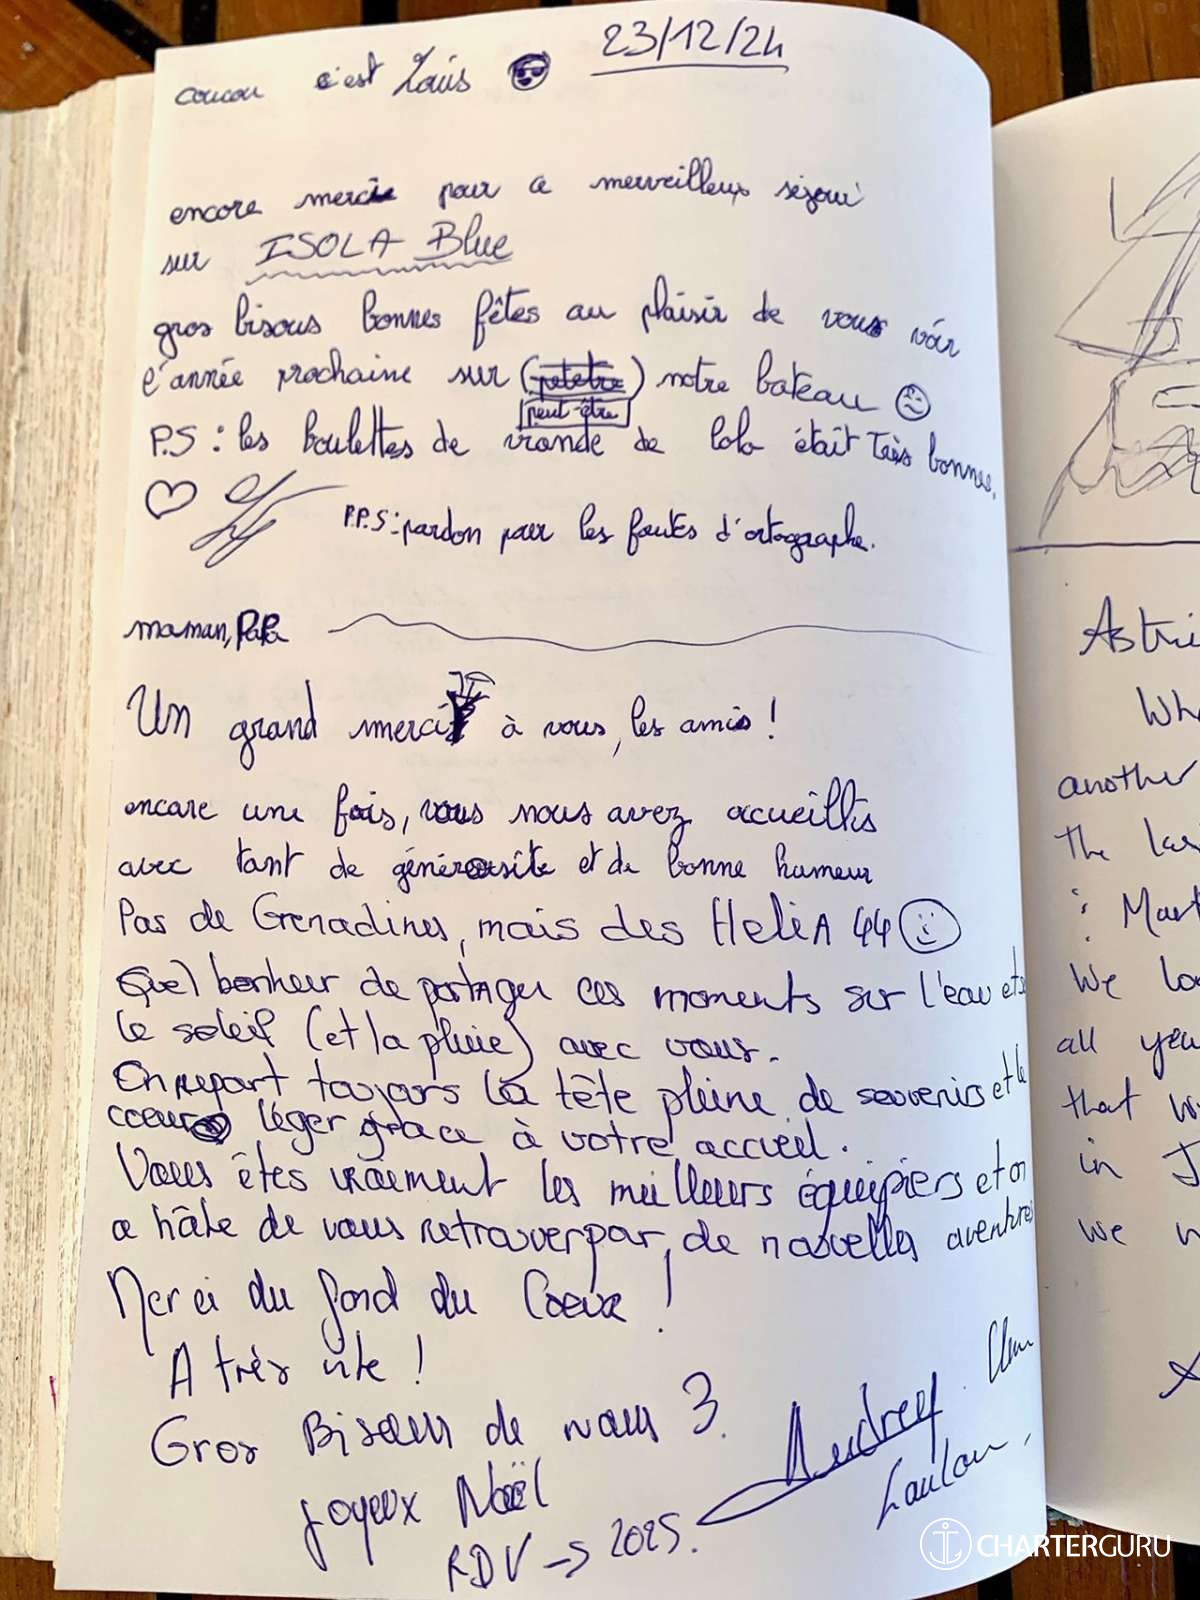 coucou c'est Louis 23/12/24
encore mercie pour ce merveilleux séjour
sur ISOLA Blue
gros bisous bonnes fêtes au plaisir de vous voir
l'année prochaine sur (petetre) notre bateau
peut-être
P.S : les boulettes de viande de lolo était Très bonnes.
P.P.S : pardon pour les fautes d'ortographe.
maman, PaPa
Un grand merci à vous, les amis !
encore une fois, vous nous avez accueillis
avec tant de générosité et de bonne humeur
Pas de Grenadines, mais des HeliA 44
Quel bonheur de partager ces moments sur l'eau et
le soleil (et la pluie) avec vous.
On repart toujours la tête pleine de souvenirs et le
coeur léger grâce à votre accueil.
Vous êtes vraiment les meilleurs équipiers et on
a hâte de vous retrouver par de nouvelles aventures
Merci du fond du Coeur !
A très vite !
Gros Bisous de nous 3.
Joyeux Noël
RDV → 2025.
Audrey
Loulou
Astri
Wh
another
the las
: Mart
We lo
all yea
that w
in J
we w
CHARTERGURU